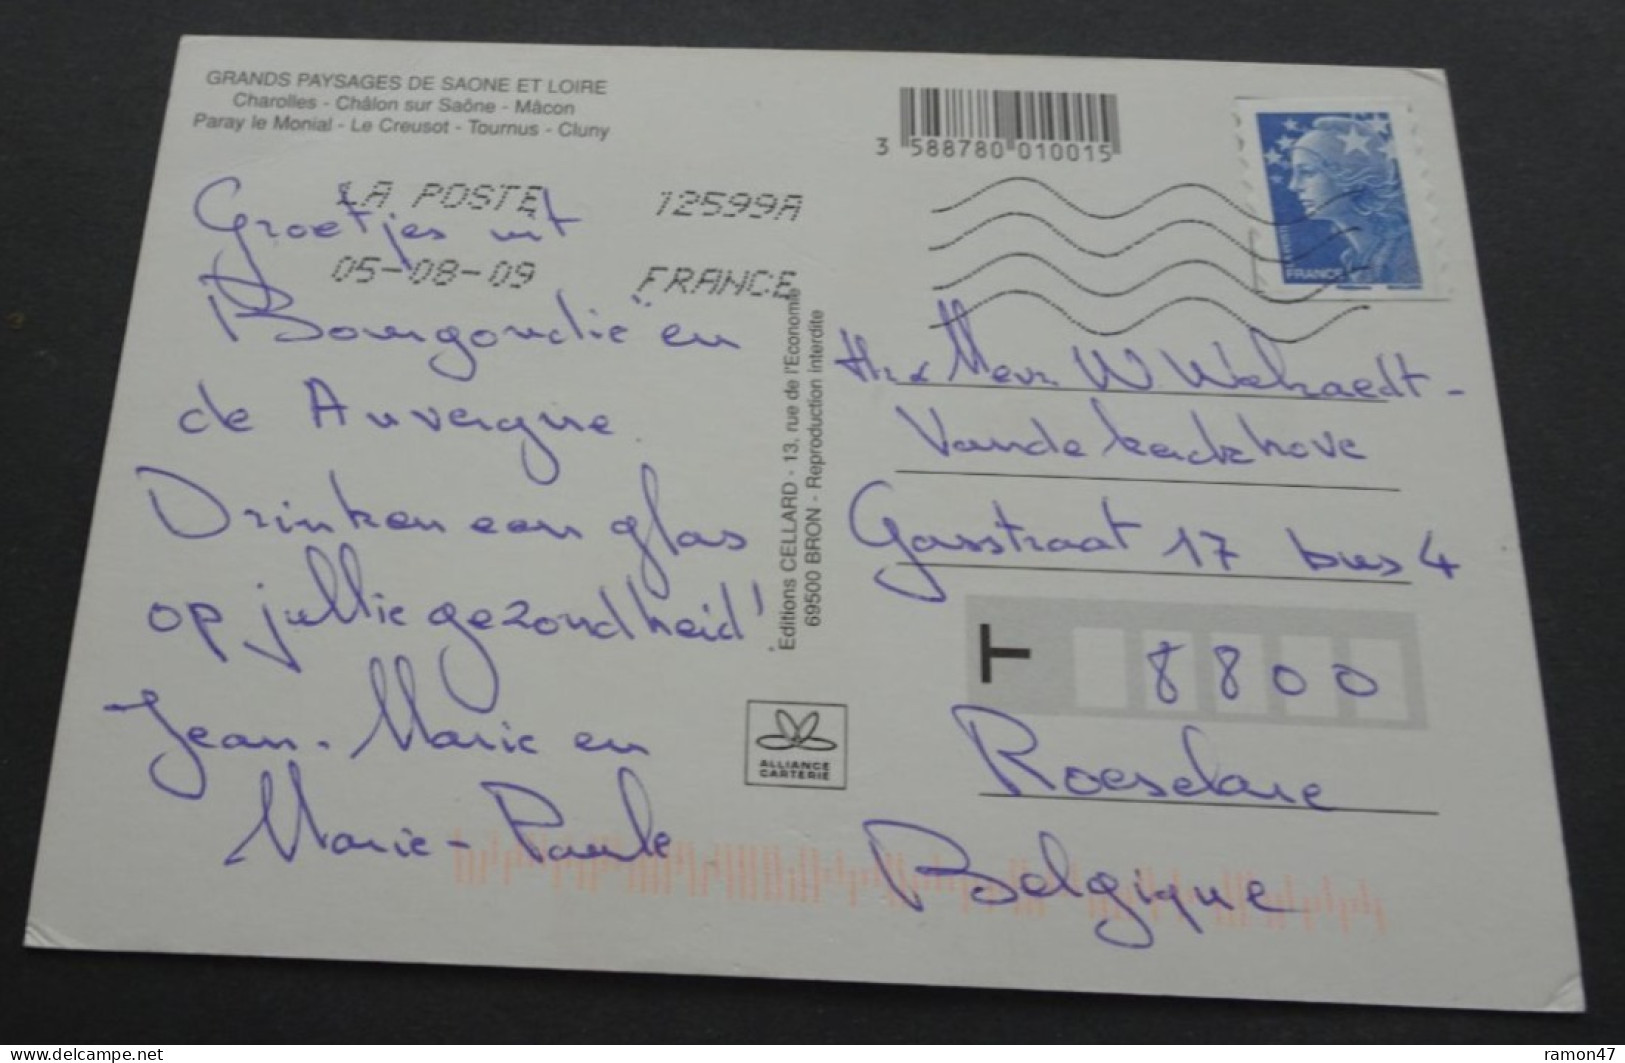 GRANDS PAYSAGES DE SAONE ET LOIRE
Charolles - Châlon sur Saône - Mâcon
Paray le Monial - Le Creusot - Tournus - Cluny
3 588780 010015
LA POSTE 12599A
05-08-09 FRANCE
FRANCE
Groetjes uit
Bourgondië en
de Auvergne.
Drinken een glas
op jullie gezondheid!
Jean-Marie en
Marie-Paule
Editions CELLARD - 13, rue de l'Economie
69500 BRON - Reproduction interdite
ALLIANCE
CARTERIE
Hr & Mevr W.
Gasstraat 17 bus 4
T 8800
Roeselare
Belgique
delcampe.net
ramon47